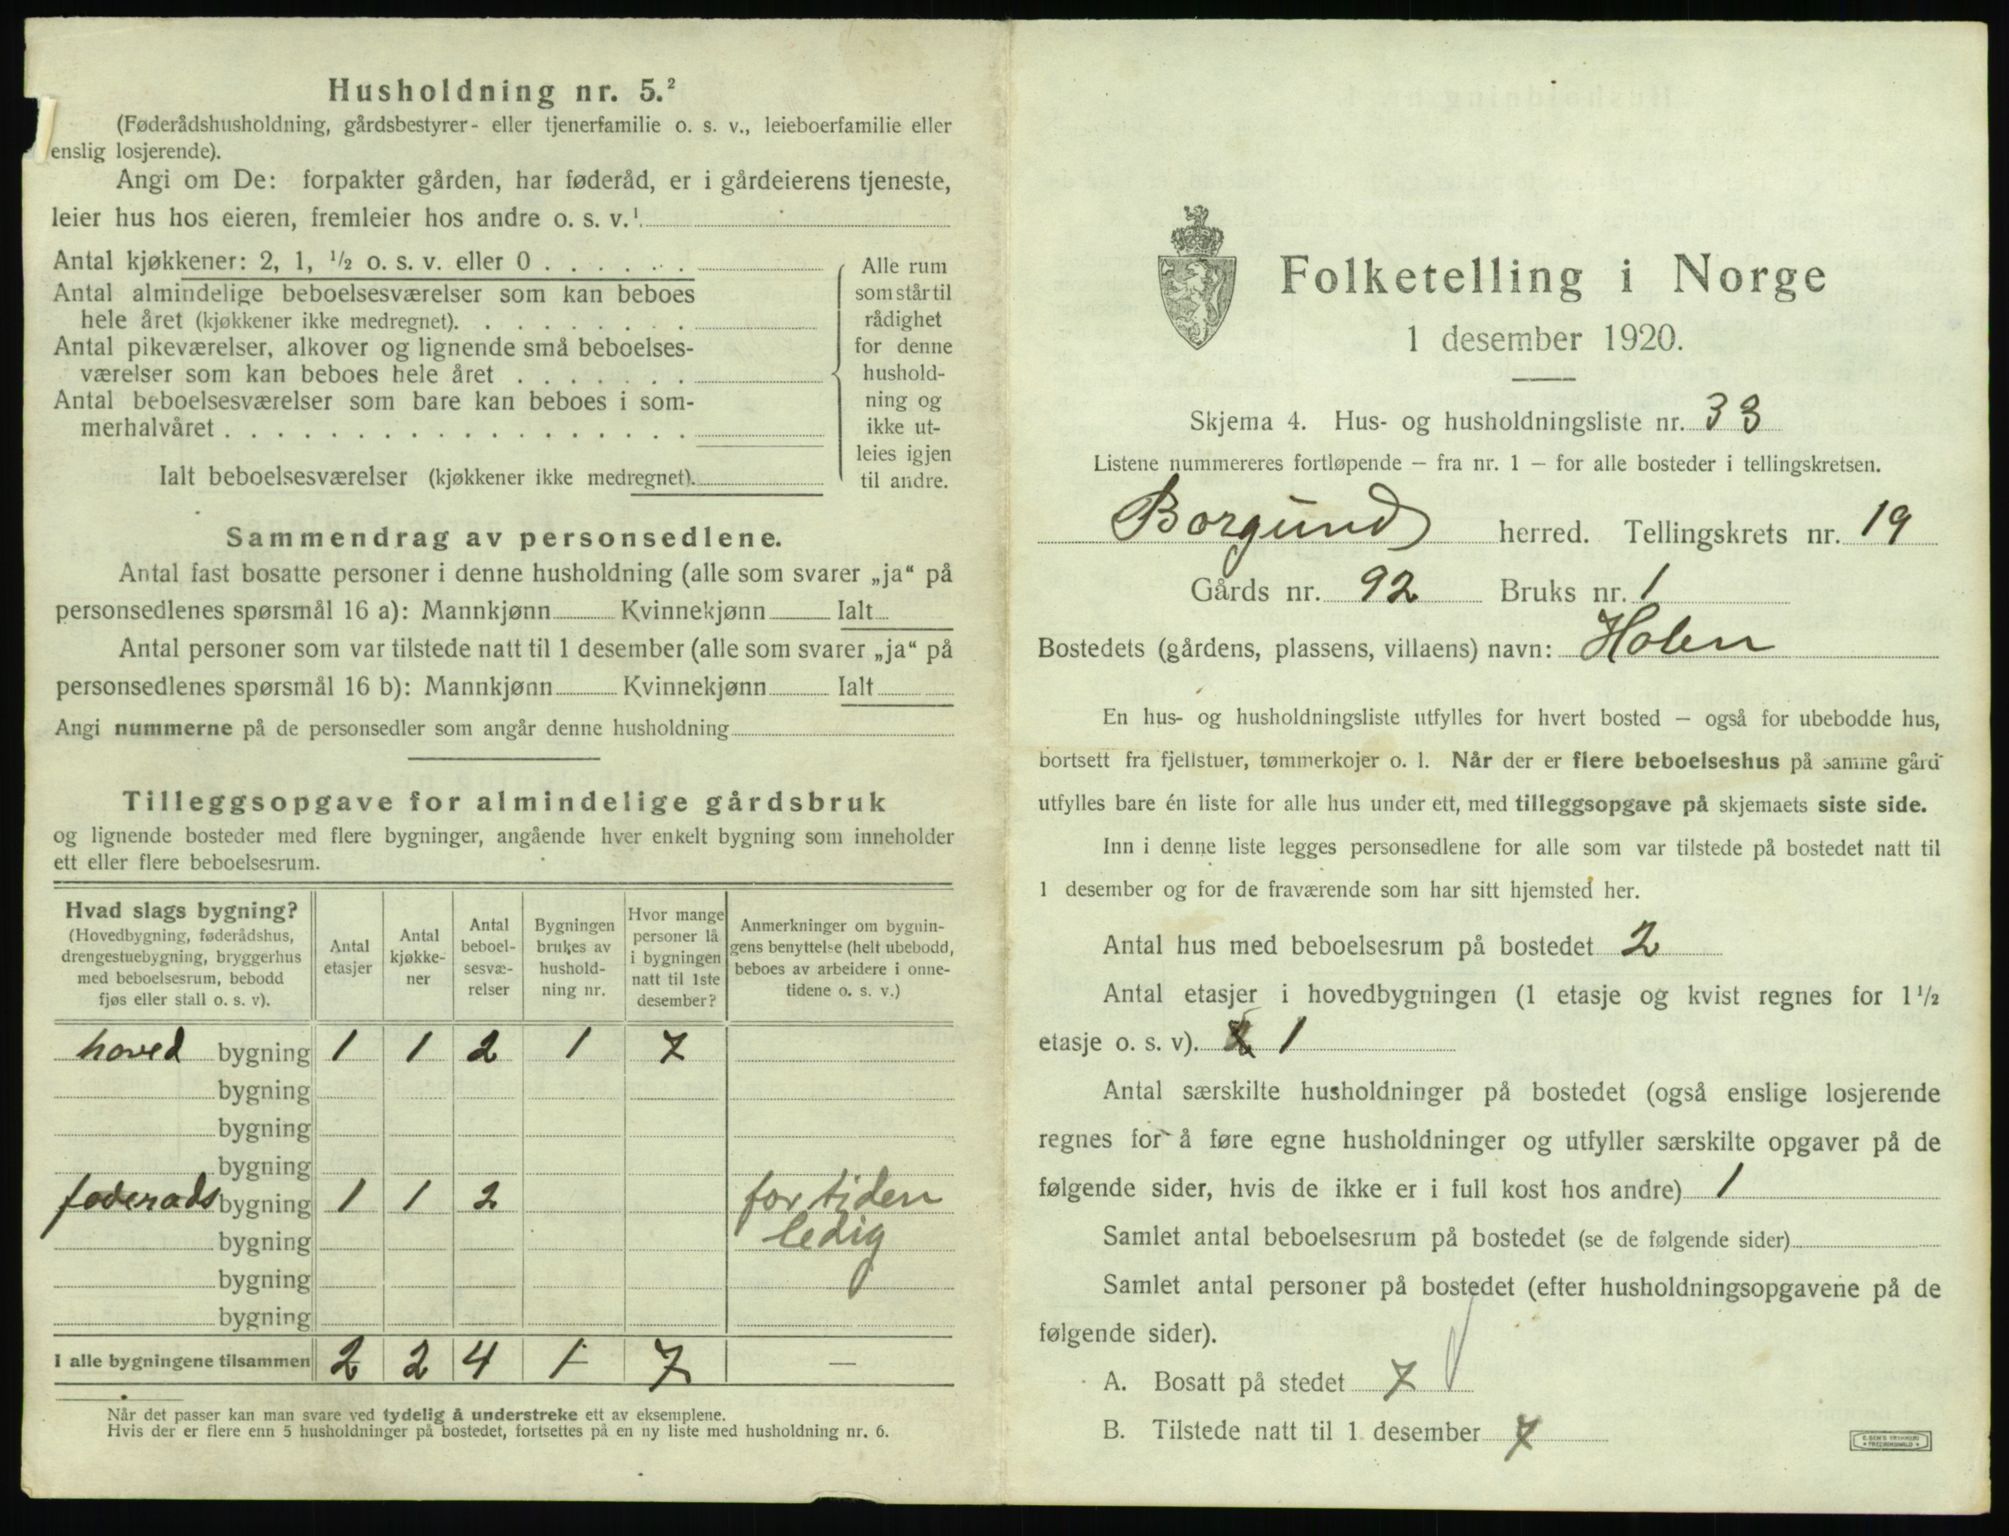 Husholdning nr. 5.²
(Føderådshusholdning, gårdsbestyrer- eller tjenerfamilie o. s. v., leieboerfamilie eller
enslig losjerende).
Angi om De: forpakter gården, har føderåd, er i gårdeierens tjeneste,
leier hus hos eieren, fremleier hos andre o. s. v.¹
Antal kjøkkener: 2, 1, ½ o. s. v. eller 0 . . . . . .
Antal almindelige beboelsesværelser som kan beboes
hele året (kjøkkener ikke medregnet). . . . . . . . .
Antal pikeværelser, alkover og lignende små beboelses-
værelser som kan beboes hele året . . . . . . .
Antal beboelsesværelser som bare kan beboes i som-
merhalvåret . . . . . . . . . . . . . . . . . .
Ialt beboelsesværelser (kjøkkener ikke medregnet).
Alle rum
som står til
rådighet
for denne
hushold-
ning og
ikke ut-
leies igjen
til andre.
Sammendrag av personsedlene.
Antal fast bosatte personer i denne husholdning (alle som svarer „ja“ på
personsedlenes spørsmål 16 a): Mannkjønn Kvinnekjønn Ialt
Antal personer som var tilstede natt til 1 desember (alle som svarer „ja“ på
personsedlenes spørsmål 16 b): Mannkjønn Kvinnekjønn Ialt
Angi nummerne på de personsedler som angår denne husholdning
Tilleggsopgave for almindelige gårdsbruk
og lignende bosteder med flere bygninger, angående hver enkelt bygning som inneholder
ett eller flere beboelsesrum.
Hvad slags bygning?
(Hovedbygning, føderådshus,
drengestuebygning, bryggerhus
med beboelsesrum, bebodd
fjøs eller stall o. s. v).
Antal
etasjer
Antal
kjøkke-
ner
Antal
beboel-
sesvæ-
relser
Bygningen
brukes av
hushold-
ning nr.
Hvor mange
personer lå
i bygningen
natt til 1ste
desember?
Anmerkninger om bygnin-
gens benyttelse (helt ubebodd,
beboes av arbeidere i onne-
tidene o. s. v.)
hoved bygning 1 1 2 1 7
bygning
bygning
bygning
føderads bygning 1 1 2 for tiden
bygning ledig
bygning
bygning
I alle bygningene tilsammen 2 2 4 1 7 —
Når det passer kan man svare ved tydelig å understreke ett av eksemplene.
Hvis der er flere enn 5 husholdninger på bostedet, fortsettes på en ny liste med husholdning nr. 6.
Folketelling i Norge
1 desember 1920.
Skjema 4. Hus- og husholdningsliste nr. 33
Listene nummereres fortløpende – fra nr. 1 – for alle bosteder i tellingskretsen.
Borgund herred. Tellingskrets nr. 19
Gårds nr. 92 Bruks nr. 1
Bostedets (gårdens, plassens, villaens) navn: Holen
En hus- og husholdningsliste utfylles for hvert bosted – også for ubebodde hus,
bortsett fra fjellstuer, tømmerkojer o. l. Når der er flere beboelseshus på samme gård
utfylles bare én liste for alle hus under ett, med tilleggsopgave på skjemaets siste side.
Inn i denne liste legges personsedlene for alle som var tilstede på bostedet natt til
1 desember og for de fraværende som har sitt hjemsted her.
Antal hus med beboelsesrum på bostedet 2
Antal etasjer i hovedbygningen (1 etasje og kvist regnes for 1½
etasje o. s. v). 1
Antal særskilte husholdninger på bostedet (også enslige losjerende
regnes for å føre egne husholdninger og utfyller særskilte opgaver på de
følgende sider, hvis de ikke er i full kost hos andre) 1
Samlet antal beboelsesrum på bostedet (se de følgende sider)
Samlet antal personer på bostedet (efter husholdningsopgavene på de
følgende sider).
A. Bosatt på stedet 7
B. Tilstede natt til 1 desember 7